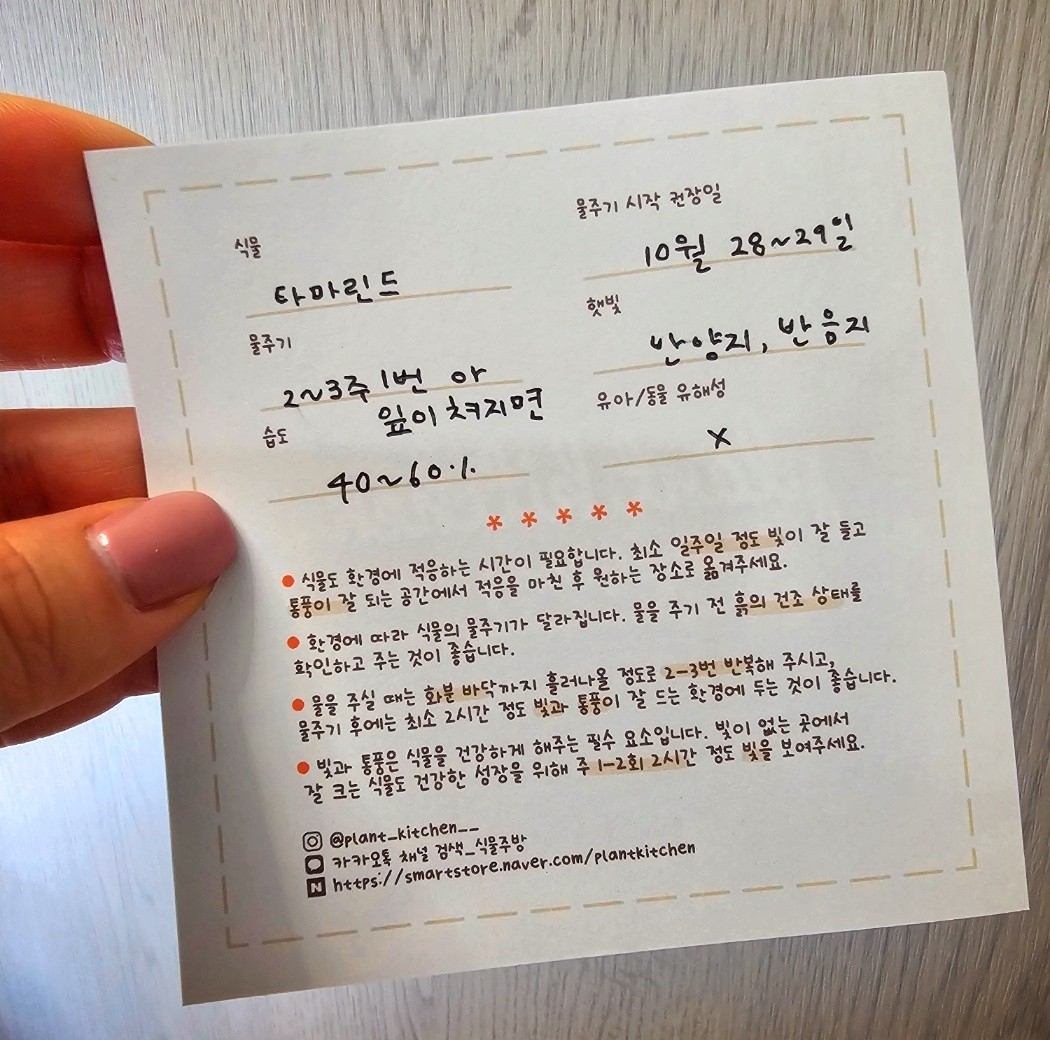 식물
타마린드
물주기 시작 권장일
10월 28~29일
물주기
2~3주 1번 아
잎이 쳐지면
햇빛
반양지, 반음지
습도
40~60%
유아/동물 유해성
X
* * * * *
● 식물도 환경에 적응하는 시간이 필요합니다. 최소 일주일 정도 빛이 잘 들고
통풍이 잘 되는 공간에서 적응을 마친 후 원하는 장소로 옮겨주세요.
● 환경에 따라 식물의 물주기가 달라집니다. 물을 주기 전 흙의 건조 상태를
확인하고 주는 것이 좋습니다.
● 물을 주실 때는 화분 바닥까지 흘러나올 정도로 2-3번 반복해 주시고,
물주기 후에는 최소 2시간 정도 빛과 통풍이 잘 드는 환경에 두는 것이 좋습니다.
● 빛과 통풍은 식물을 건강하게 해주는 필수 요소입니다. 빛이 없는 곳에서
잘 크는 식물도 건강한 성장을 위해 주 1-2회 2시간 정도 빛을 보여주세요.
@plant_kitchen__
카카오톡 채널 검색_식물주방
N https://smartstore.naver.com/plantkitchen